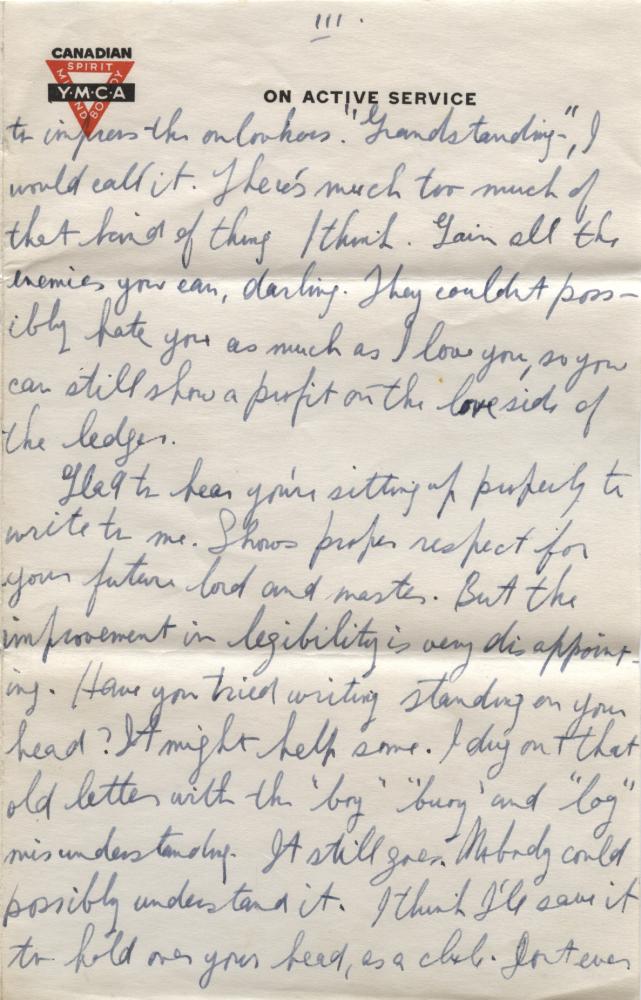 III.
CANADIAN
SPIRIT
MIND
BODY
Y·M·C·A
ON ACTIVE SERVICE
to impress the onlookers. "Grandstanding", I
would call it. There's much too much of
that kind of thing I think. Gain all the
enemies you can, darling. They couldn't poss-
ibly hate you as much as I love you, so you
can still show a profit on the love side of
the ledger.
Glad to hear you're sitting up properly to
write to me. Shows proper respect for
your future lord and master. But the
improvement in legibility is very disappoint-
ing. Have you tried writing standing on your
head? It might help some. I dug out that
old letter with the "boy" "buoy" and "log"
misunderstanding. It still goes. Nobody could
possibly understand it. I think I'll save it
to hold over your head, as a club. Don't ever